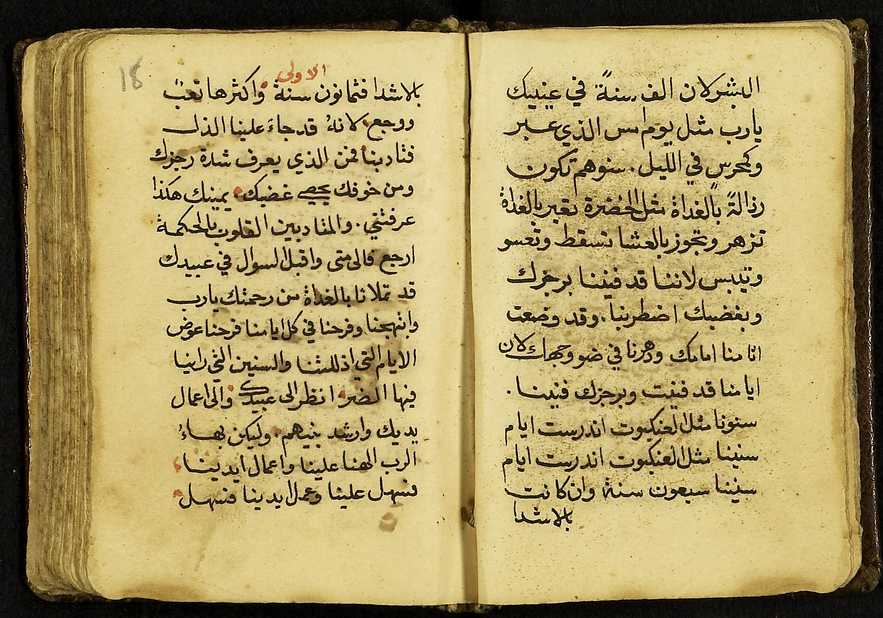 البشر لان الف سنةً في عينيك
يارب مثل يوم امس الذي عبر
وكمحرس في الليل. سنوهم تكون
رذالةً بالغداة مثل الخضرة تغبر بالغداة
تزهر وتجوز بالعشا تسقط وتعسو
وتيبس لاننا قد فنينا برجزك
وبغضبك اضطربنا. وقد وضعت
اثامنا امامك ودهرنا في ضو وجهك لان
ايامنا قد فنيت وبرجزك فنينا.
سنونا مثل العنكبوت اندرست ايام
سنينا مثل العنكبوت اندرست ايام
سنينا سبعون سنة وان كانت
بالاشدا
18
الاولى
بالاشدا فثمانون سنة واكثرها تعب
ووجع. لانهُ قد جاءَ علينا الذل
فتادبنا فمن الذي يعرف شدة رجزك
ومن خوفك يحصي غضبك. يمينك هكذا
عرفتني. والمتادبين القلوب بالحكمة
ارجع فالى متى واقبل السوال في عبيدك
قد تملانا بالغداة من رحمتك يارب
وابتهجنا وفرحنا في كل ايامنا فرحنا عوض
الايام التي اذللتنا والسنين التي راينا
فيها الضر. انظر الى عبيدك والى اعمال
يديك وارشد بنيهم. وليكن بهاءُ
الرب الهنا علينا واعمال ايدينا
فسهل علينا وعمل ايدينا فسهل